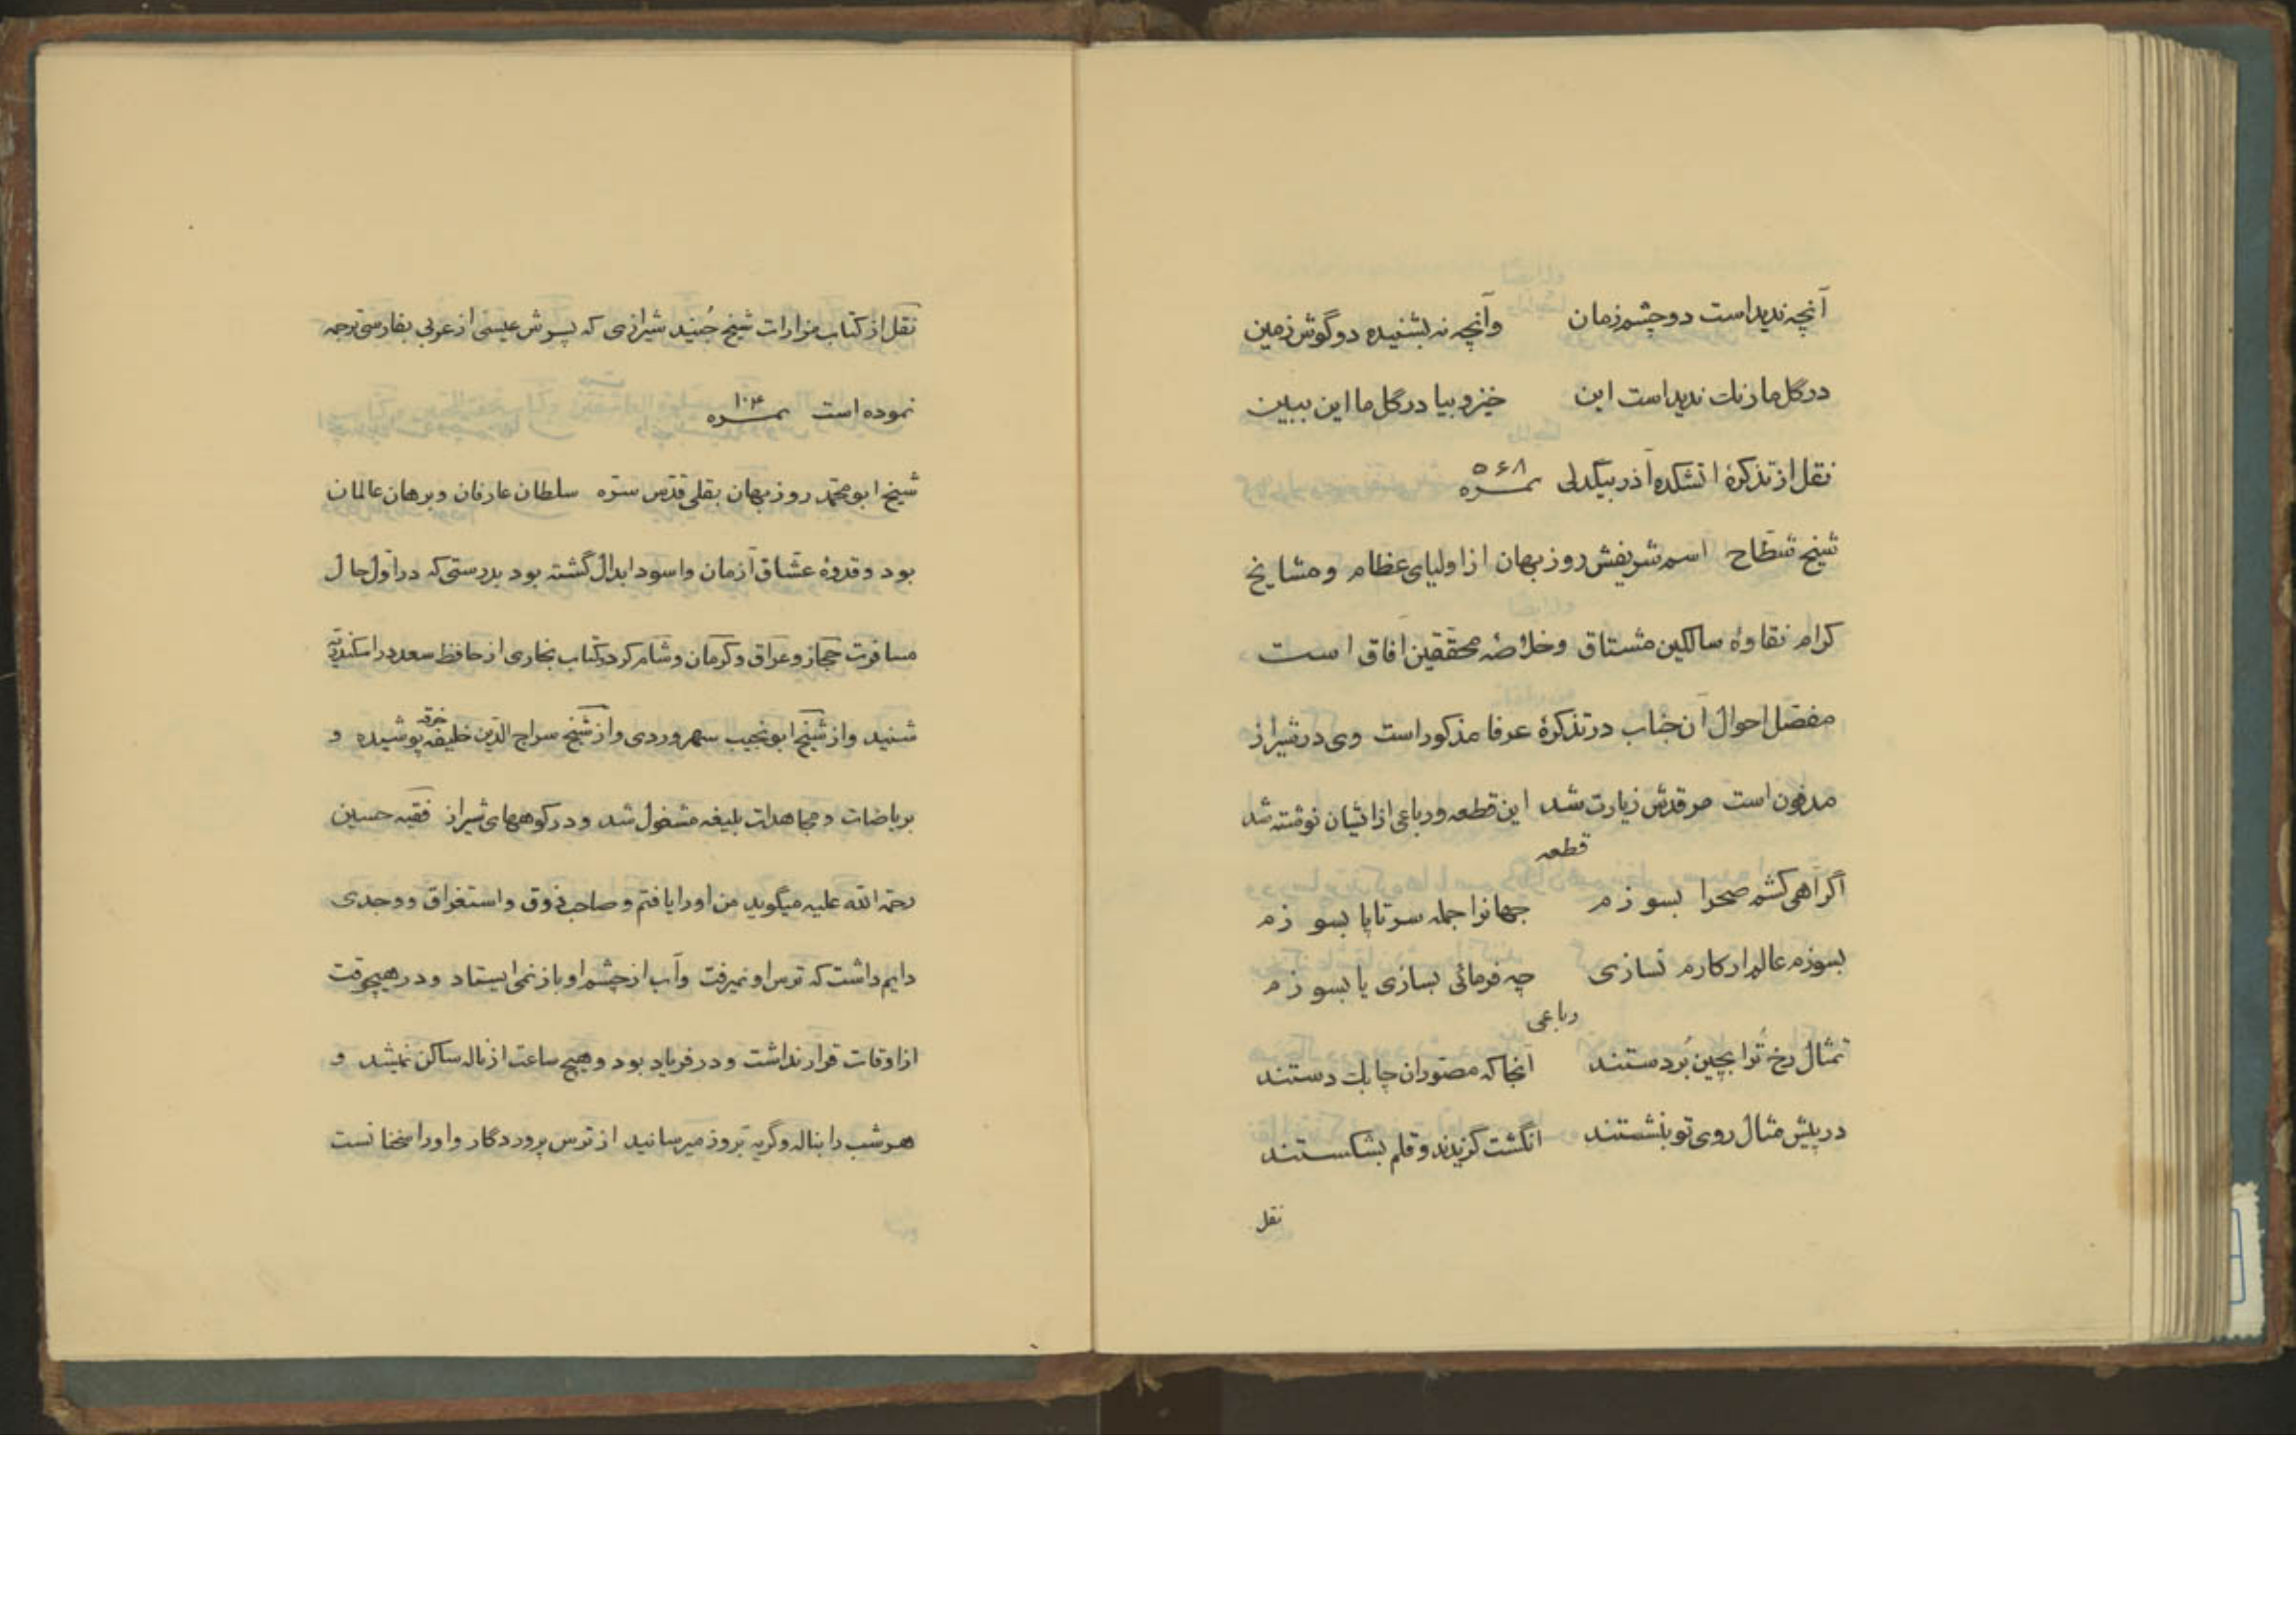 آنچه ندیداست دو چشم زمان وآنچه نه بشنیده دو گوش زمین
در گل ما رنگ ندیداست این خیز و بیا در گل ما این ببین
نقل از تذکرهٔ اتشکده آذر بیگدلی نمره ۵۶۸
شیخ شطّاح اسم شریفش روزبهان از اولیای عظام و مشایخ
کرام نقاوهٔ سالکین مشتاق وخلاصهٔ محققین آفاق است
مفصّل احوال آن جناب در تذکرهٔ عرفا مذکور است وی در شیراز
مدفون است مرقدش زیارت شد این قطعه ورباعی از ایشان نوشته شد
قطعه
اگر اهی کشم صحرا بسوزم جهانرا جمله سر تا پا بسوزم
بسوزم عالم ار کارم نسازی چه فرمائی بسازی یا بسوزم
رباعی
تمثال رخ تُرا بچین بُردستند آنجا که مصوّران چابک دستند
در پیش مثال روی تو بنشستند انگشت گزیدند و قلم بشکستند
نقل
نقل از کتاب مزارات شیخ جُنید شیرازی که پسرش عیسی از عربی بفارسی ترجمه
نموده است نمره ۱۰۴
شیخ ابو محمّد روزبهان بقلی قدّس سرّه سلطان عارفان و برهان عالمان
بود و قدوهٔ عشاق آزمان واسود ابدال گشته بود بدرستی که در اوّل حال
مسافرت حجاز و عراق و کرمان و شام کرد و کتاب بخاری از حافظ سعد در اسکندریّه
شنید و از شیخ ابو نجیب سهروردی و از شیخ سراج الدّین خلیفه خرقه پوشیده و
بریاضات و مجاهدات بلیغه مشغول شد و در کوههای شیراز فقیه حسین
رحمة الله علیه میگوید من او را یافتم و صاحب ذوق و استغراق و وجدی
دایم داشت که ترس او نمیرفت وآب از چشم او باز نمی ایستاد و در هیچوقت
از اوقات قرار نداشت و در فریاد بود و هیچ ساعت از ناله ساکن نمیشد و
هر شب را بناله و گریه بروز میرسانید از ترس پروردگار و اورا سخنانست